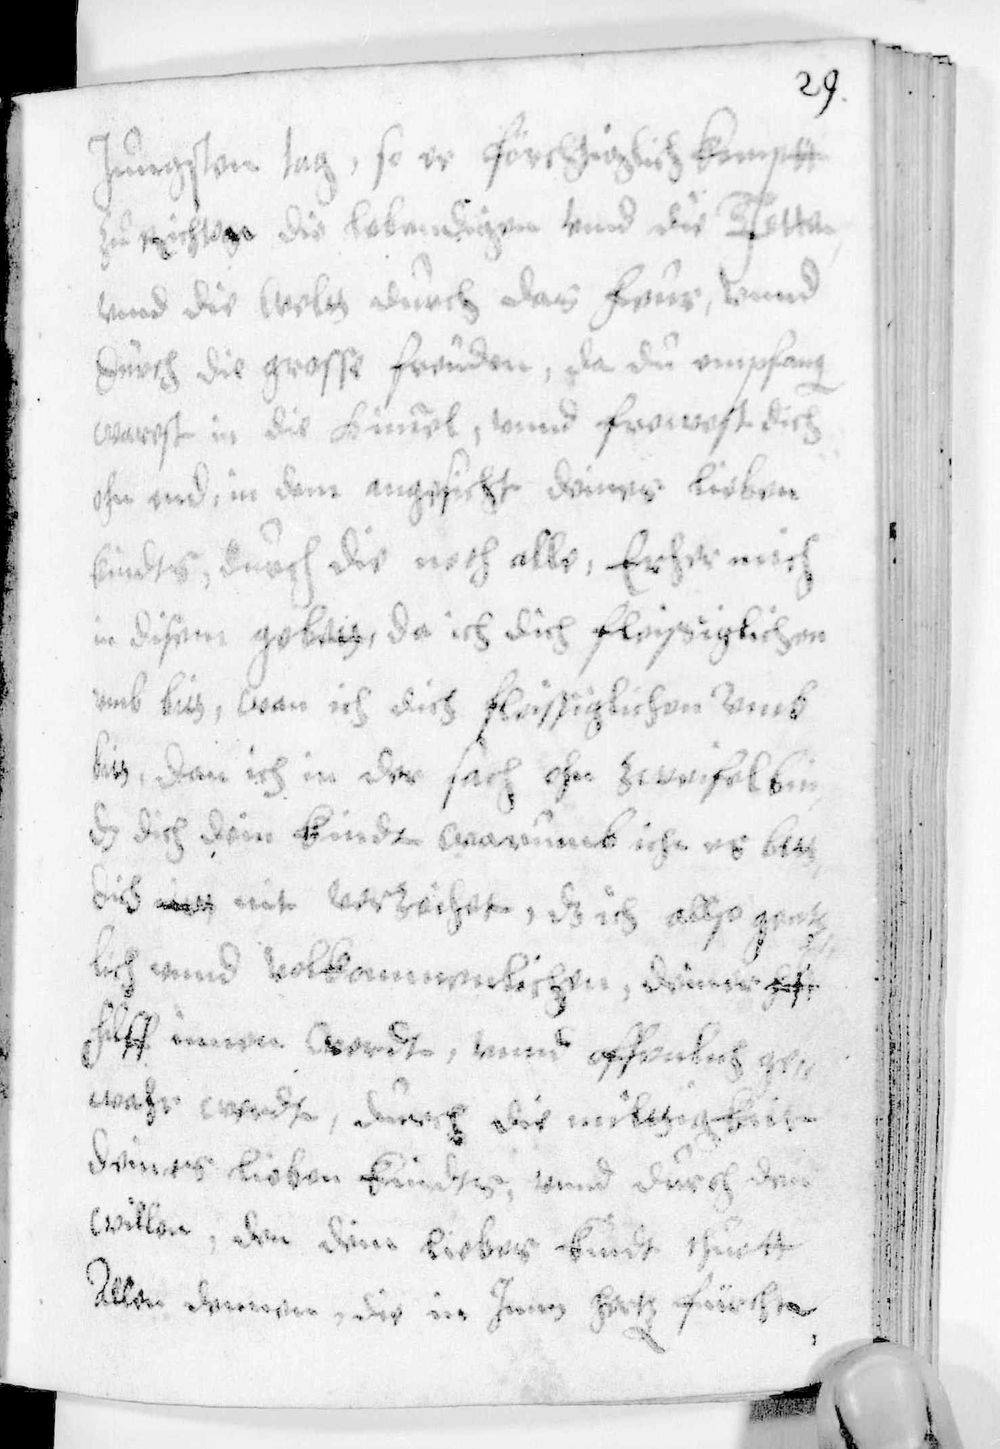 29.
Jungsten tag, so er förchtiglich kompt
zu richten die lebendigen vnd die Totten,
vnnd die welt durch das feur, vnnd
durch die grosse freuden, da du empfang
warest in die himel, vnnd frewest dich
ohn end, in dem angesicht deines lieben
kindts, durch die noth alle, Erhör mich
in disem gebett, da ich dich fleissiglichen
vmb bitt, wan ich dich fleissiglichen vmb
bitt, dan ich in der sach ohn zweifel bin,
dz dich dein kindt warumb ich es bitt,
dich nit verzeichet, dz ich allso gentz„
lich vnnd volkommenlichen, deiner
hilff innen werdt, vnnd offenlich ge„
wahr werdt, durch die miltigkeit
deines lieben kindts, vnnd durch den
willen, den dein liebes kindt thuett
Allen dennen, die in Jrem hertz fürchten,